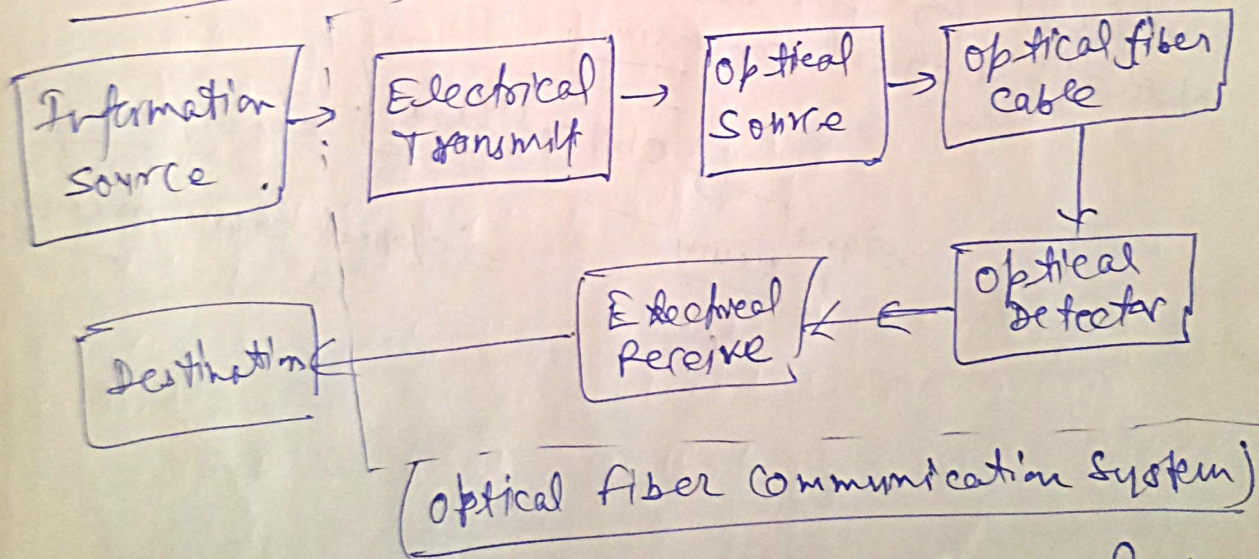 Information
Source
Electrical
Transmit
Optical
Source
Optical fiber
Cable
Optical
Detector
Electrical
Receive
Destination
(Optical fiber Communication System)